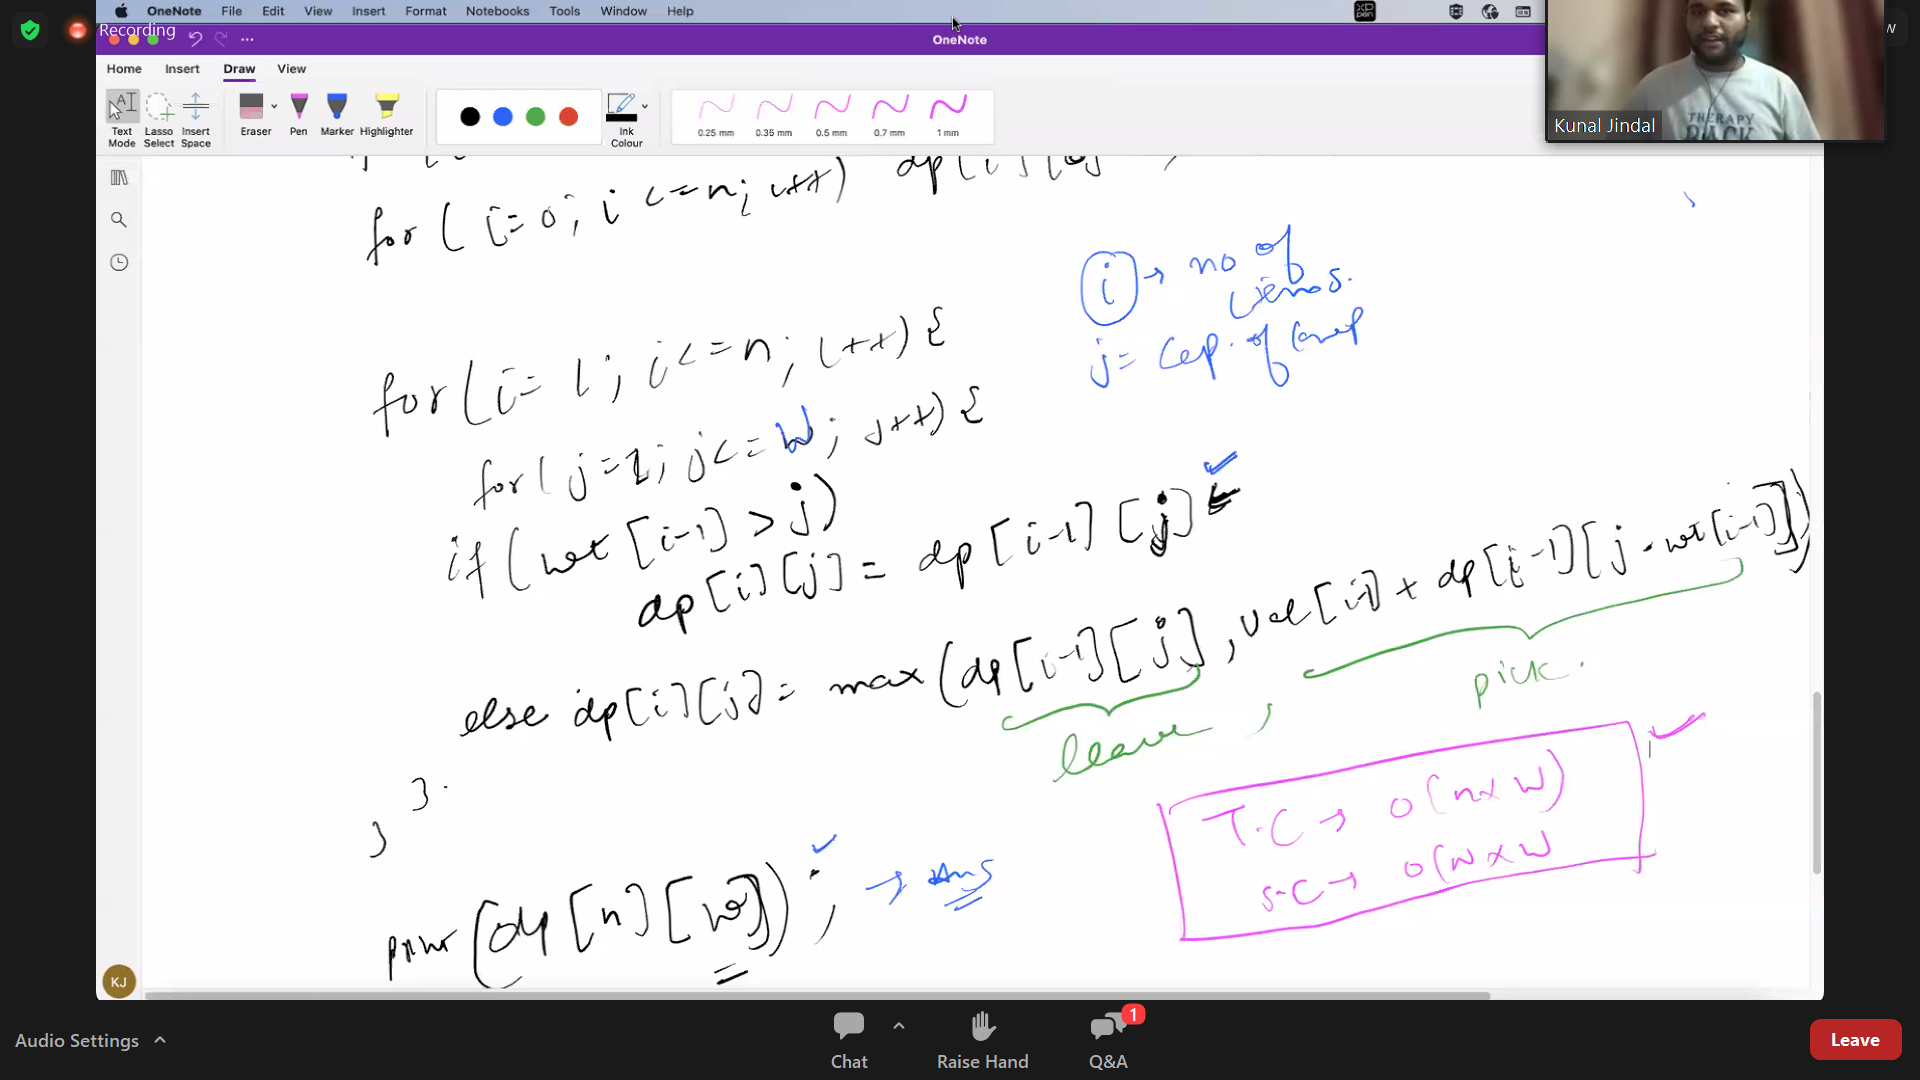 OneNote File Edit View Insert Format Notebooks Tools Window Help
Recording
OneNote
W
Home Insert Draw View
Text Mode
Lasso Select
Insert Space
Eraser
Pen
Marker
Highlighter
Ink Colour
0.25 mm 0.35 mm 0.5 mm 0.7 mm 1 mm
THERAPY
Kunal Jindal
for ( i=0; i <=n; i++) dp[i][0]
i → no of
items.
j = cap. of knap
for( i= 1; i<=n; i++) {
for( j=1; j<=W; j++) {
if( wt [i-1] > j)
dp[i][j] = dp[i-1][j]
else dp[i][j] = max(dp[i-1][j], val[i-1] + dp[i-1][j-wt[i-1]])
leave , pick.
}
}
T.C → O(n x W)
S.C → O(n x W
print(dp[n][W]); → Ans
KJ
Audio Settings
Chat
Raise Hand
1
Q&A
Leave